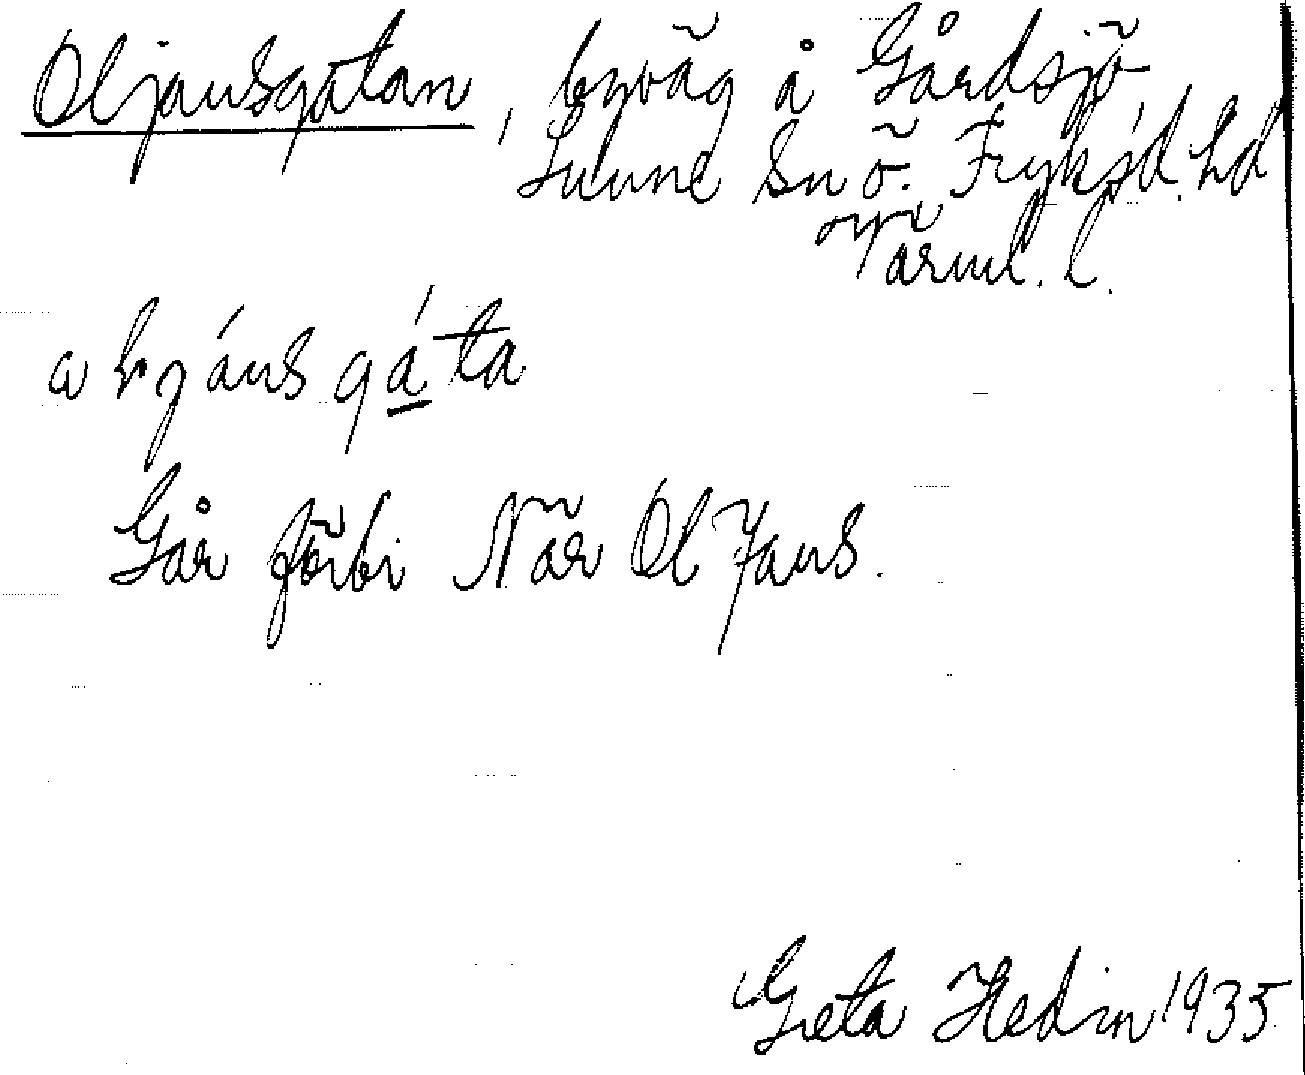 Oljansgatan, byväg å Gårdsjö
Sunne Sn ö. Fryksd. hd
Värml. l.
jánsgáta
Går förbi När Ol Jans.
Greta Hedin 1935